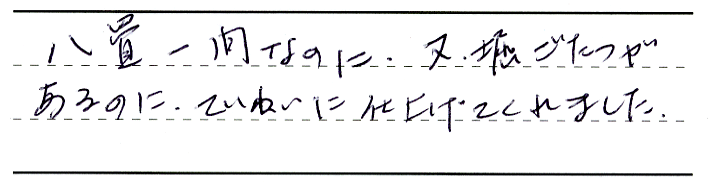 八畳一間なのに、又、堀ごたつが
あるのに、ていねいに仕上げてくれました。